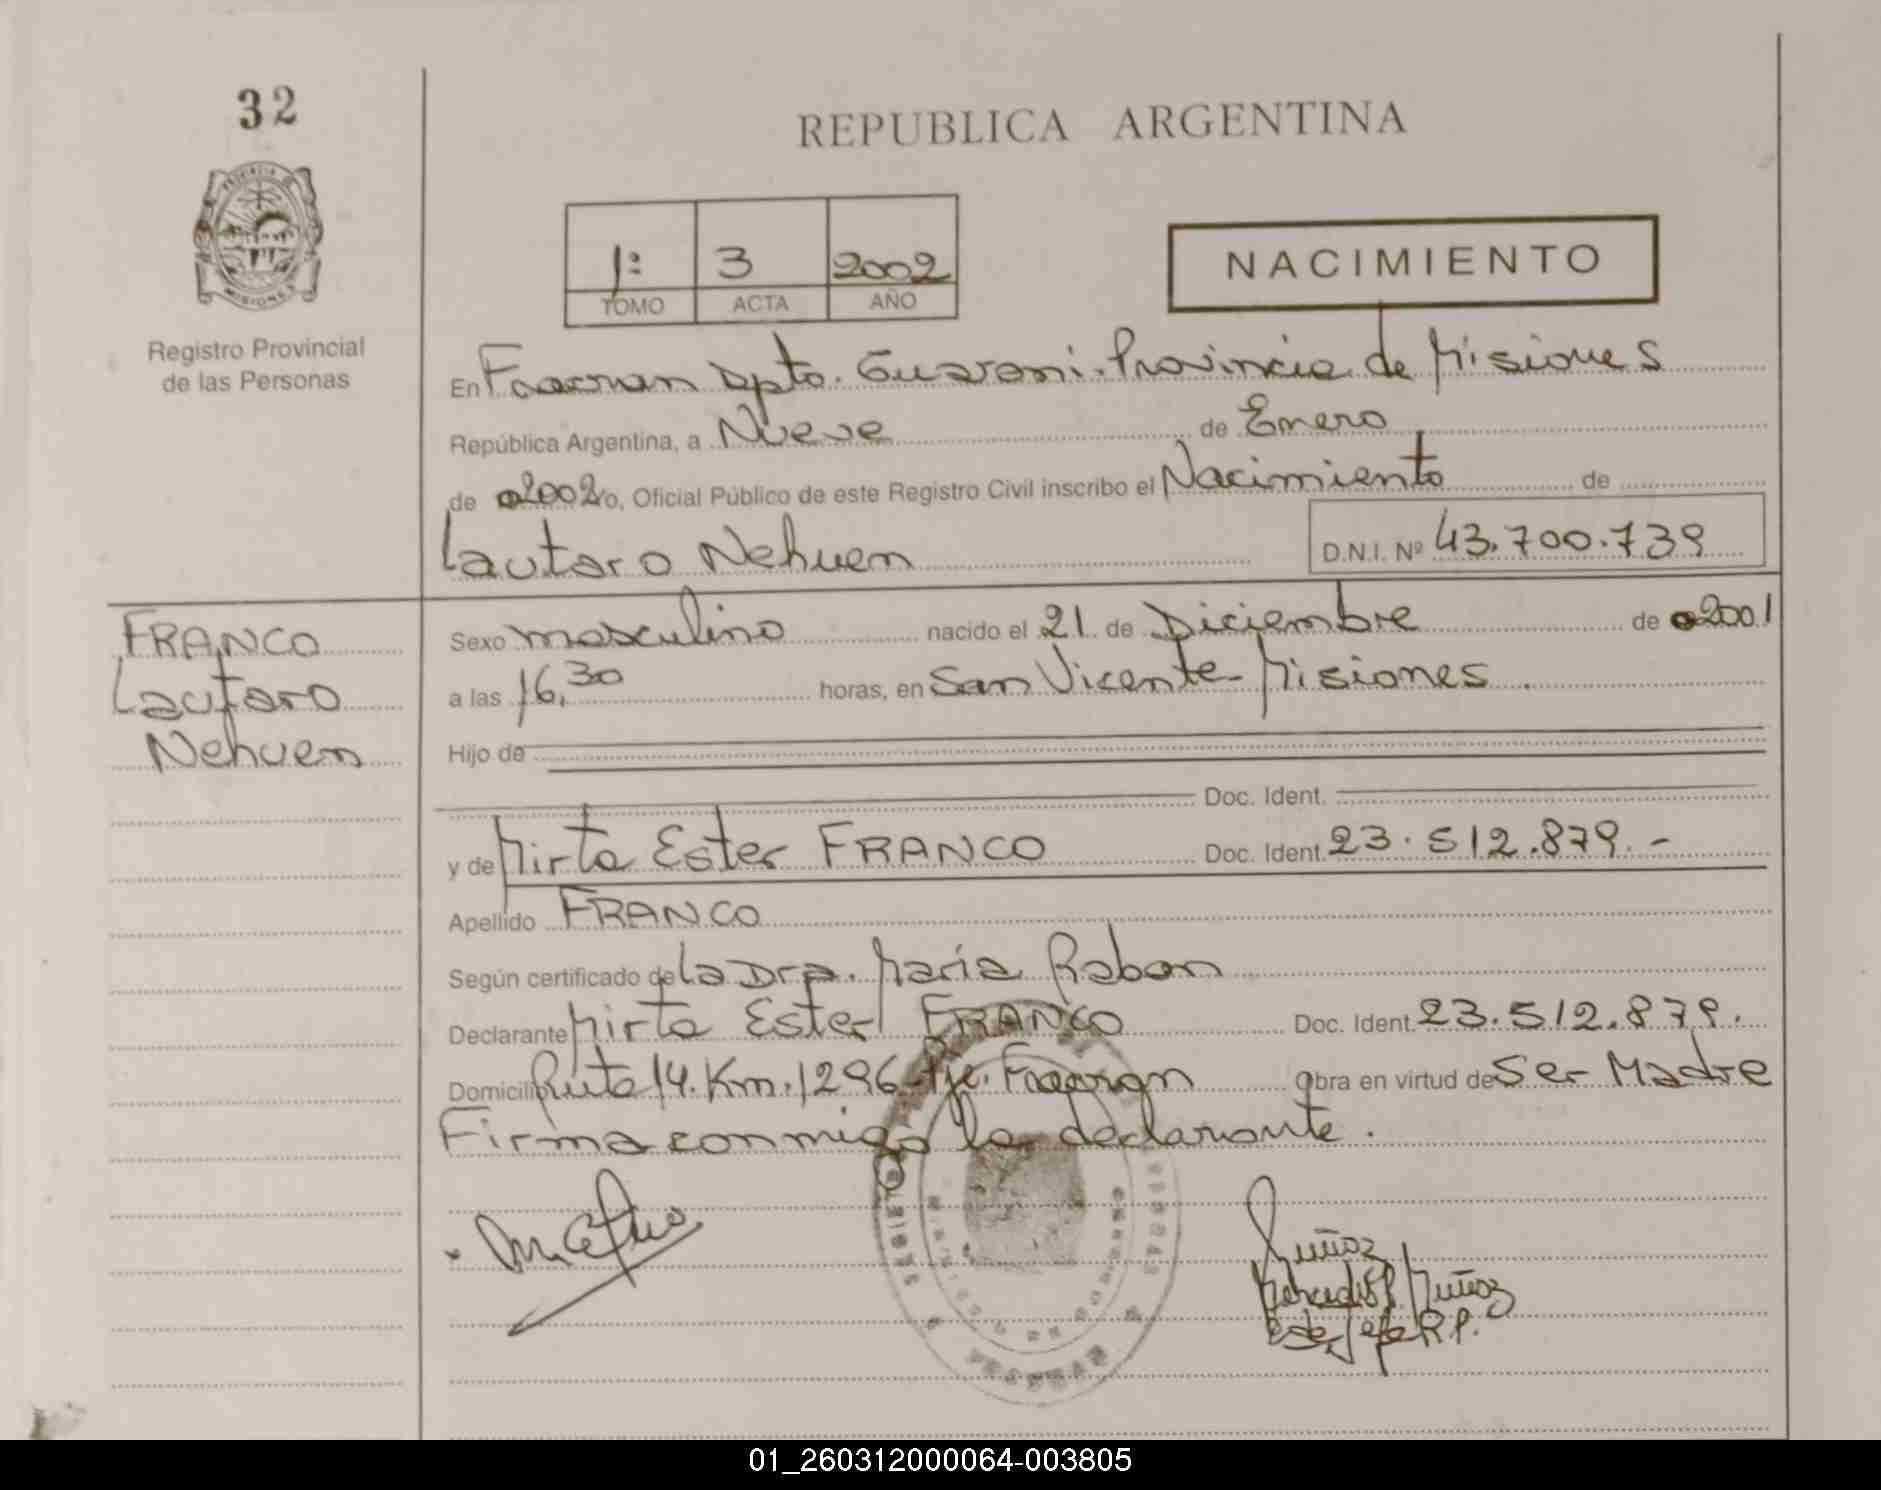 32
REPUBLICA ARGENTINA
PROVINCIA DE
MISIONES
Registro Provincial
de las Personas
1º 3 2002
TOMO ACTA AÑO
NACIMIENTO
En Fracran Dpto. Guarani. Provincia de Misiones
República Argentina, a Nueve de Enero
de 2002 yo, Oficial Público de este Registro Civil inscribo el Nacimiento de
Lautaro Nehuen D.N.I. Nº 43.700.739
FRANCO
Lautaro
Nehuen
Sexo masculino nacido el 21 de Diciembre de 2001
a las 16,30 horas, en San Vicente - Misiones.
Hijo de
Doc. Ident.
y de Mirta Ester FRANCO Doc. Ident. 23.512.879.-
Apellido FRANCO
Según certificado de La Dra. María Rabon
Declarante Mirta Ester FRANCO Doc. Ident. 23.512.879.
Domicilio Ruta 14. Km. 1296 - Pje. Fracran Obra en virtud de Ser Madre
Firma conmigo la declarante.
Muñoz
Muñoz
Jefe R.P.
01_260312000064-003805